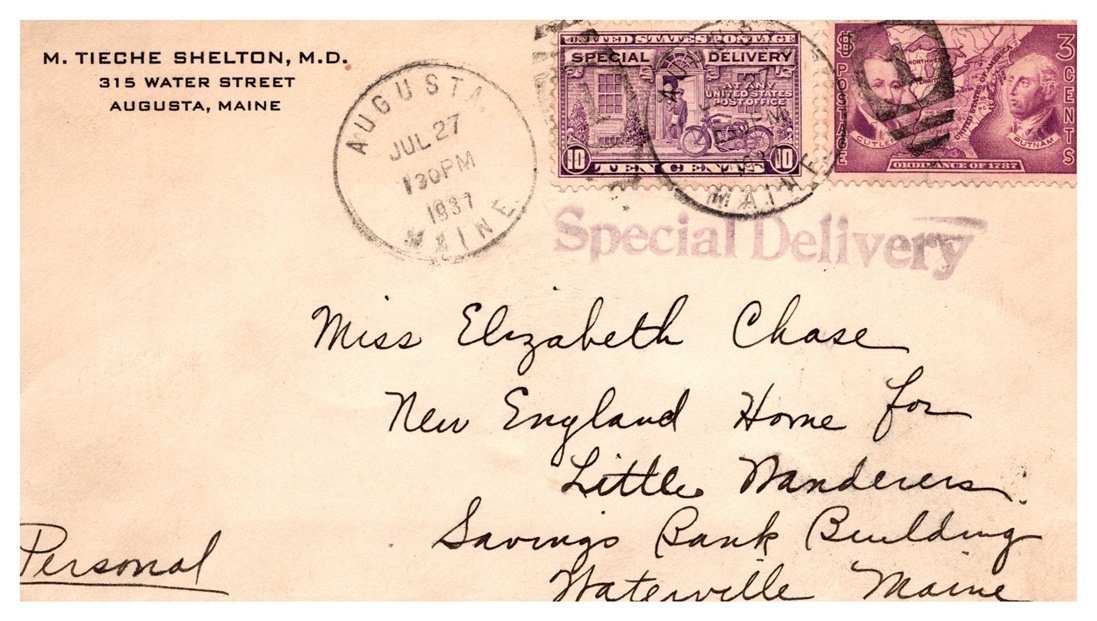 M. TIECHE SHELTON, M.D.
315 WATER STREET
AUGUSTA, MAINE
AUGUSTA
JUL 27
130PM
1937
MAINE
UNITED STATES POSTAGE
SPECIAL DELIVERY
AT ANY
UNITED STATES
POST OFFICE
10 TEN CENTS 10
MAINE
1
POSTAGE
3 CENTS
NORTHWEST
UNITED STATES OF AMERICA
CUTLER
PUTNAM
ORDINANCE OF 1787
Special Delivery
Miss Elizabeth Chase
New England Home for
Little Wanderers.
Savings Bank Building
Waterville Maine
Personal